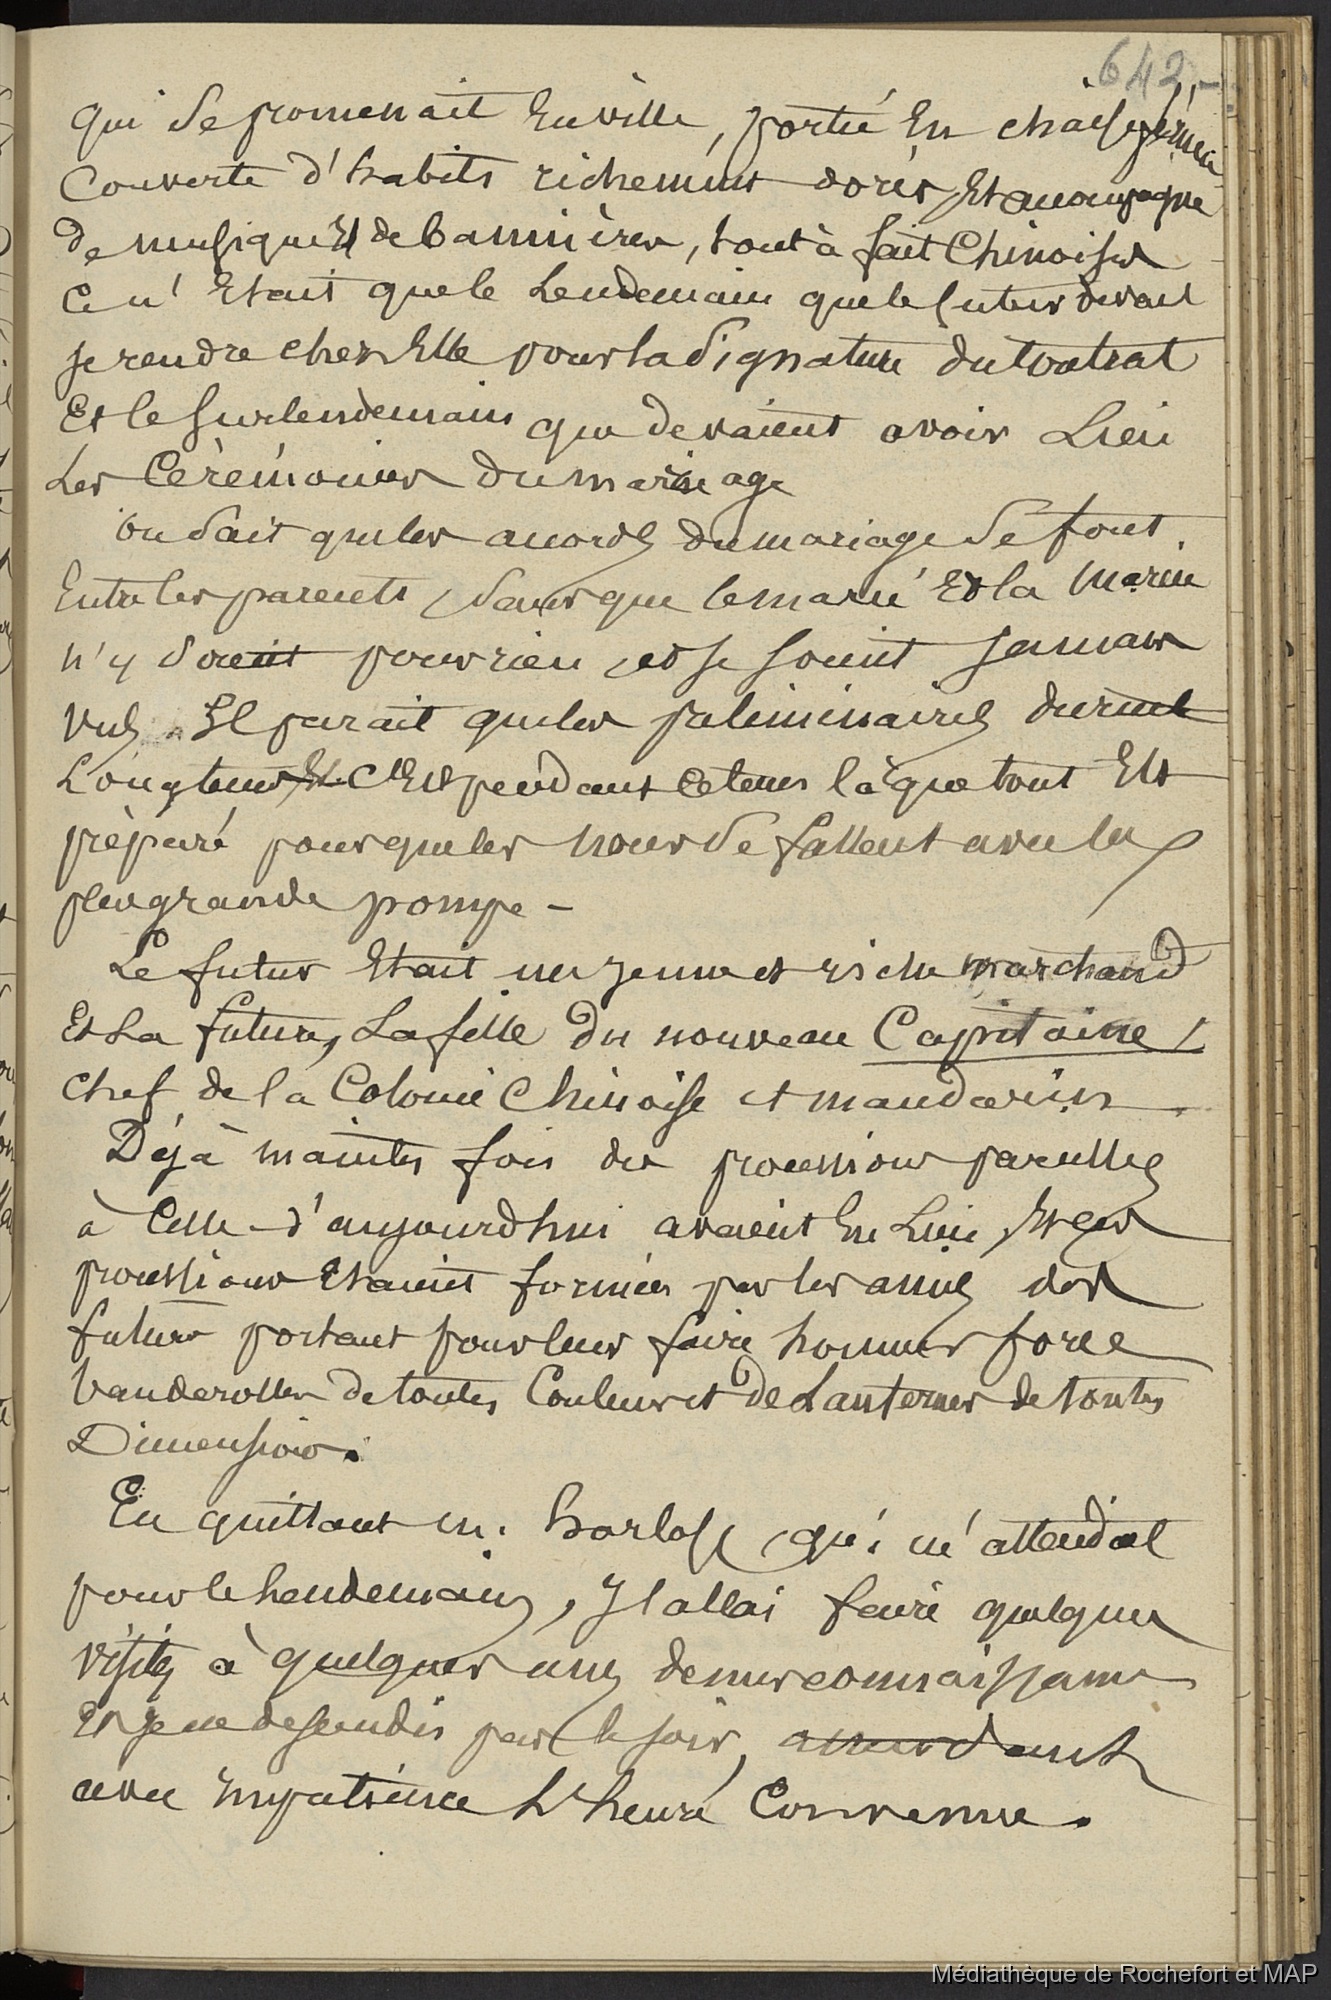 642
qui se promenait En ville, portée En chaise fermée
Couverte d'habits richement dorés Et accompagnée
de musique Et de bannières, tout à fait Chinoises
Ce n' Etait que le Lendemain que le futur devait
se rendre chez Elle pour la Signature du Contrat
Et le surlendemain que devaient avoir Lieu
Les Cérémonies du mariage
On Sait que les accords du mariage Se font
Entre les parents, Sans que le marié Et la Mariée
n'y Soient pour rien, et se soient jamais
vus. Il parait que les préliminaires durent
Longtems Et C'Est pendant ce tems là que tout Est
préparé pour que les noces Se fassent avec la
plus grande pompe -
Le futur Etait un jeune et riche marchand
Et La future, La fille du nouveau Capitaine,
chef de la Colonie Chinoise et mandarin.
Déjà maintes fois des processions pareilles
à Celle d'aujourd'hui avaient Eu Lieu, Et ces
processions Etaient formées par les amis des
futurs portant pour leur faire honneur force
banderolles de toutes Couleurs et de Lanternes de toutes
Dimensions.
En quittant m. harloff, qui m'attendait
pour le Lendemain, J'allai faire quelques
visites à quelques uns de mes connaissances
Et je me descendis par le soir, attendant
avec Impatience L'heure Convenue.
Médiathèque de Rochefort et MAP